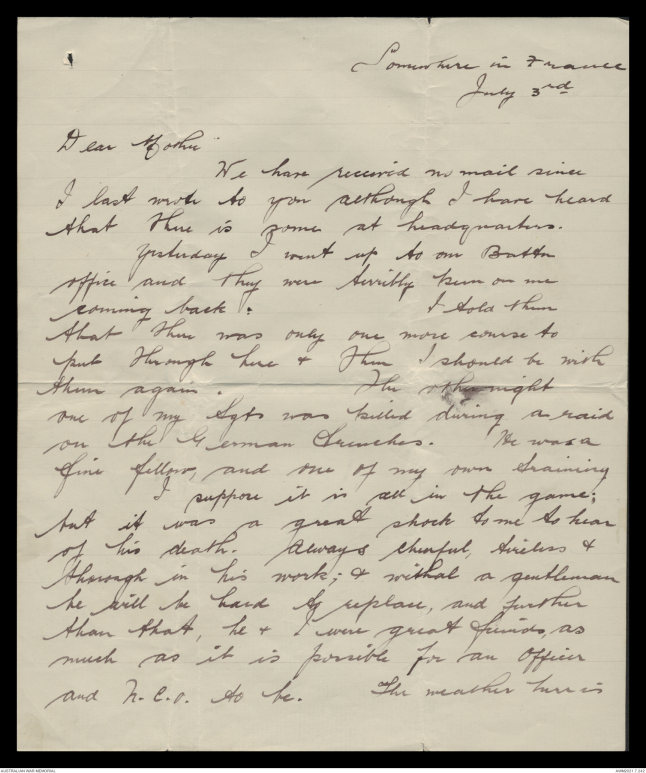 Somewhere in France
July 3rd
Dear Mother
We have received no mail since
I last wrote to you although I have heard
that there is some at headquarters.
Yesterday I went up to our Battn
office and they were terribly keen on me
coming back. I told them
that there was only one more course to
put through here & then I should be with
them again. The other night
one of my Sgts was killed during a raid
on the German trenches. He was a
fine fellow, and one of my own training
I suppose it is all in the game;
but it was a great shock to me to hear
of his death. Always cheerful, tireless &
thorough in his work; & withal a gentleman
he will be hard to replace, and further
than that, he & I were great friends, as
much as it is possible for an Officer
and N.C.O. to be. The weather here is
AUSTRALIAN WAR MEMORIAL
AWM2021.7.242